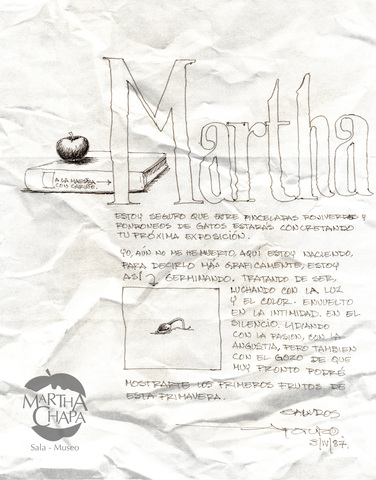 Martha
A LA MAESTRA
CON CARIÑO.
ESTOY SEGURO QUE ENTRE PINCELADAS ROJIVERDES Y
RONRONEOS DE GATOS ESTARÁS CONCRETANDO
TU PRÓXIMA EXPOSICIÓN.
YO, AÚN NO ME HE MUERTO, AQUÍ ESTOY NACIENDO,
PARA DECIRLO MÁS GRAFICAMENTE, ESTOY
ASÍ GERMINANDO. TRATANDO DE SER,
LUCHANDO CON LA LUZ
Y EL COLOR. ENVUELTO
EN LA INTIMIDAD. EN EL
SILENCIO. LIDIANDO
CON LA PASION, CON LA
ANGUSTIA, PERO TAMBIEN
CON EL GOZO DE QUE
MUY PRONTO PODRÉ
MOSTRARTE LOS PRIMEROS FRUTOS DE
ESTA PRIMAVERA.
SALUDOS
3/IV/87.
MARTHA
CHAPA
Sala - Museo